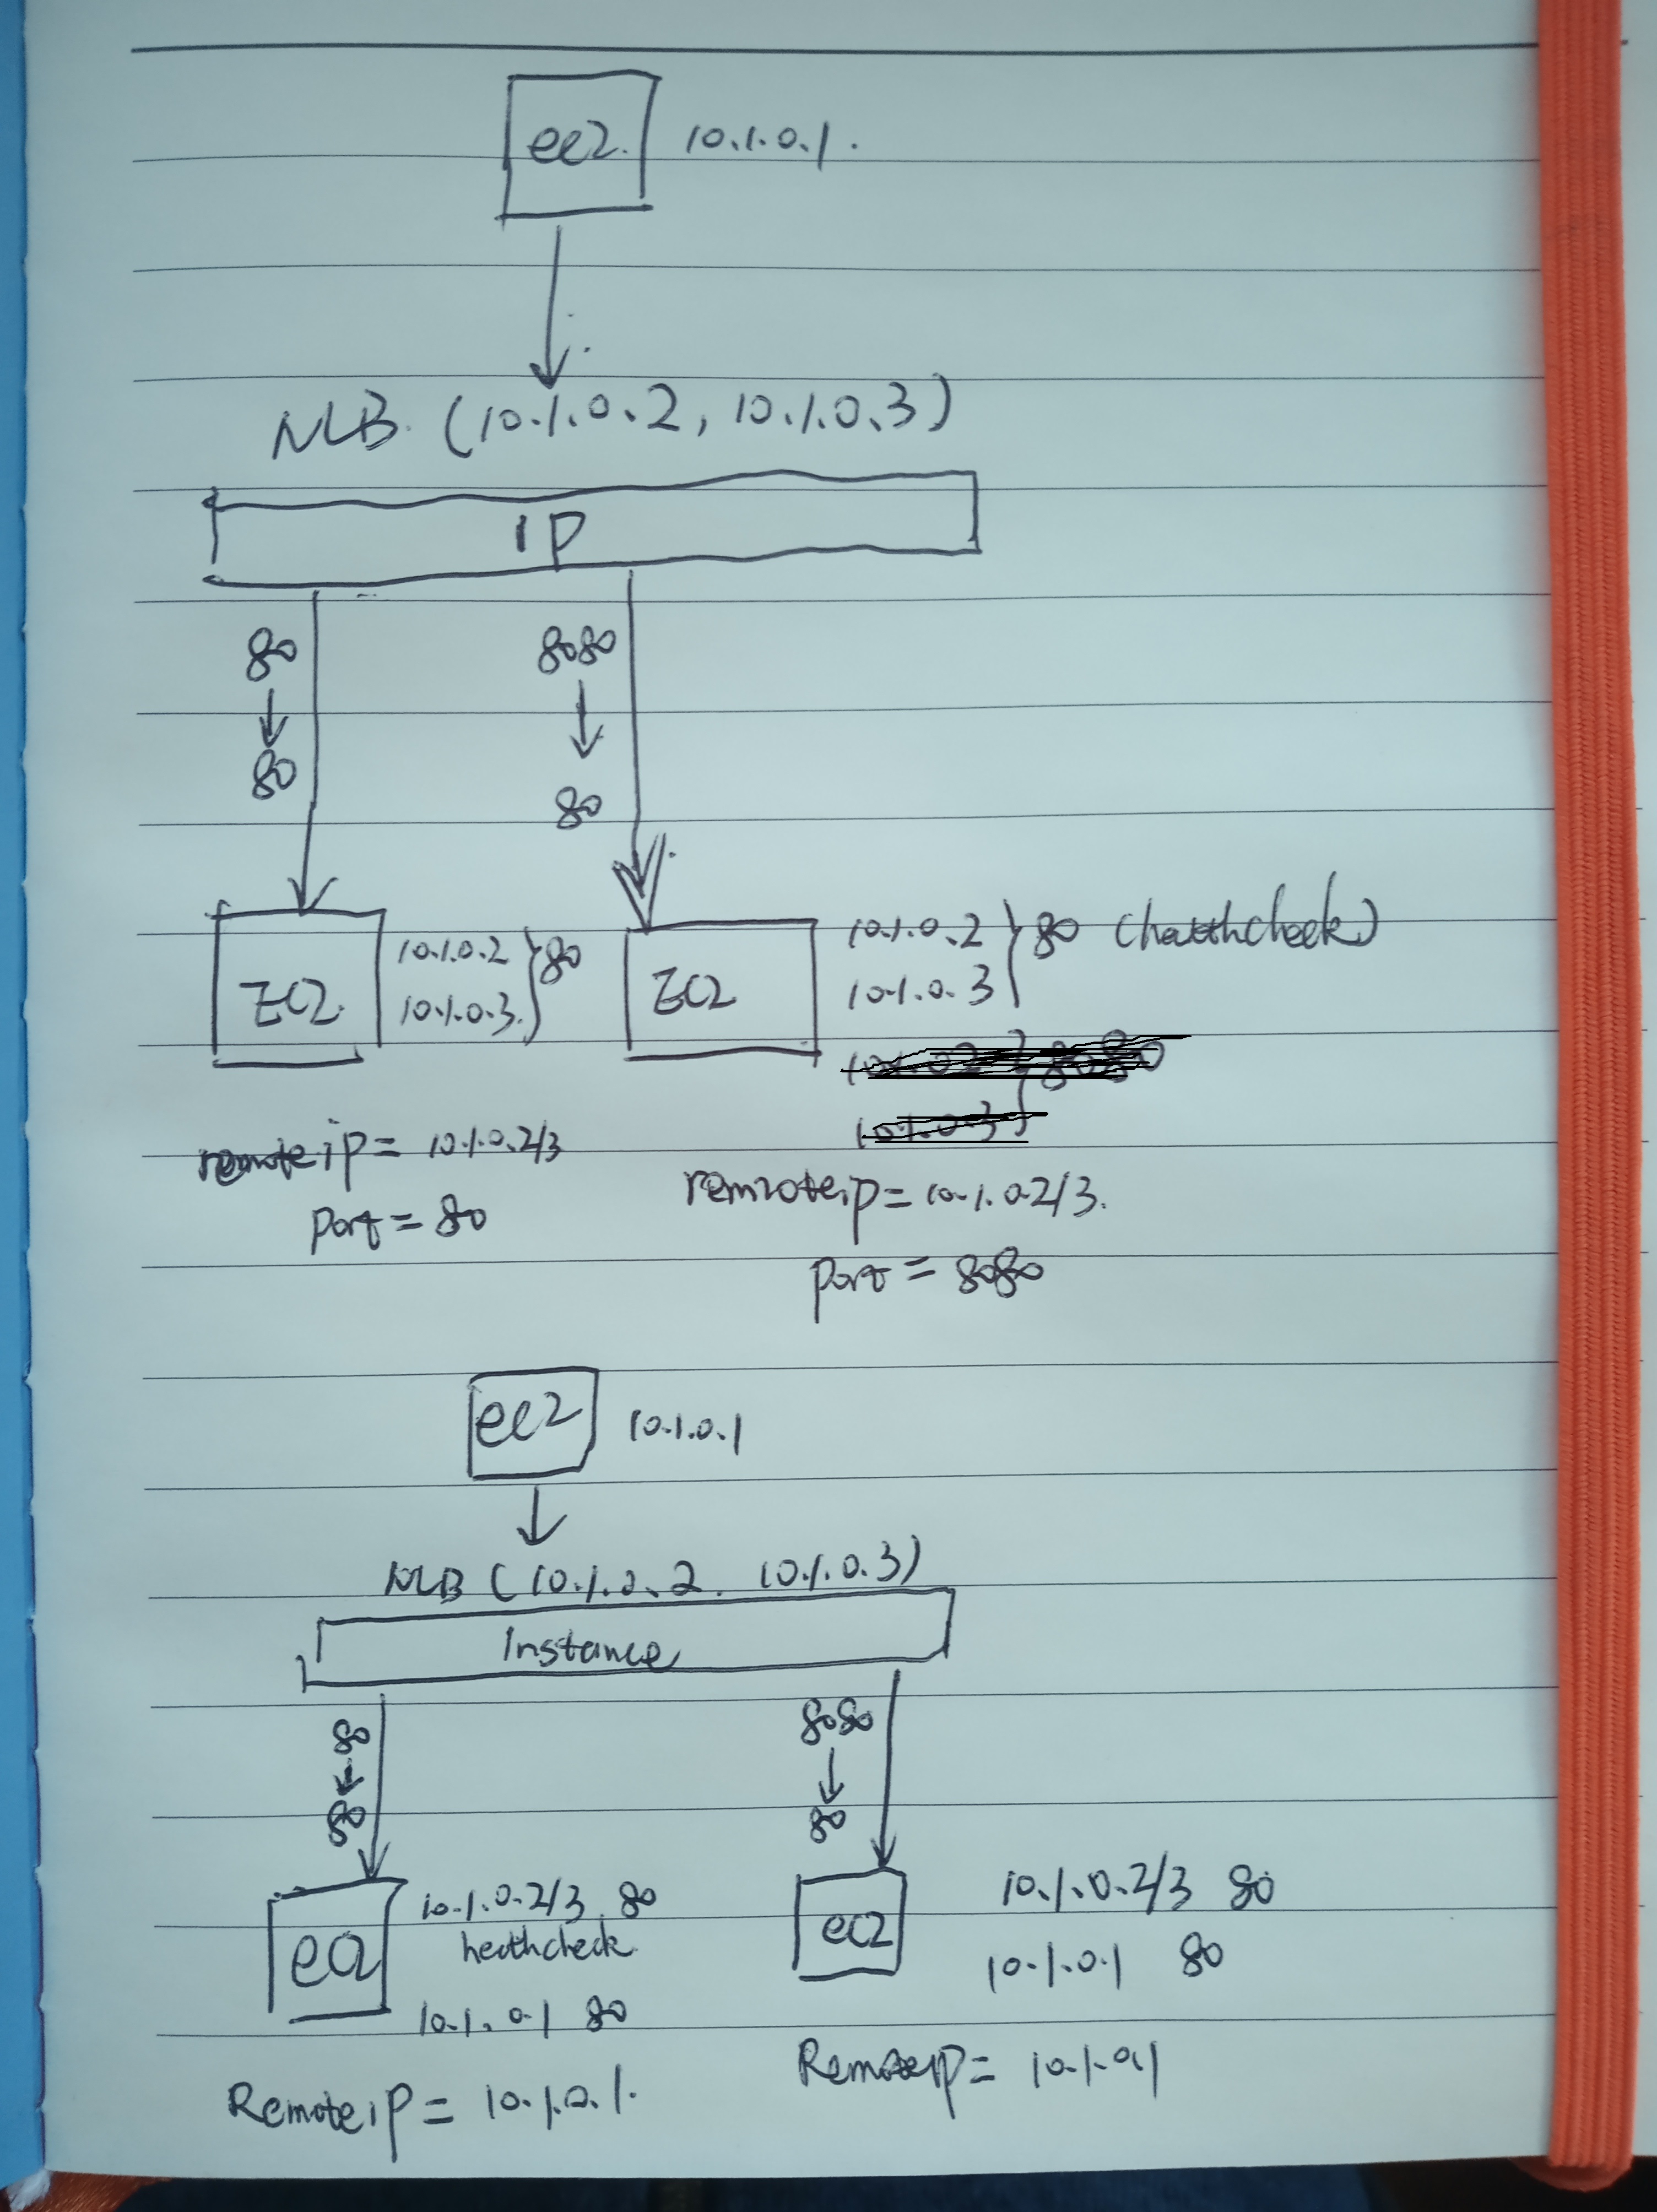 ec2. 10.1.0.1.
NLB. (10.1.0.2, 10.1.0.3)
IP
80 8080
80 80
EC2. 10.1.0.2 } 80
10.1.0.3.
EC2 10.1.0.2 } 80 (heathcheck)
10.1.0.3
10.1.0.2 } 8080
10.1.0.3
remoteip = 10.1.0.2/3
port = 80
remoteip = 10.1.0.2/3.
port = 8080
ec2 10.1.0.1
NLB (10.1.0.2. 10.1.0.3)
Instance
80 8080
80 80
ec2 10.1.0.2/3. 80
heathcheck
10.1.0.1 80
ec2 10.1.0.2/3 80
10.1.0.1 80
Remoteip = 10.1.0.1.
Remoteip = 10.1.0.1